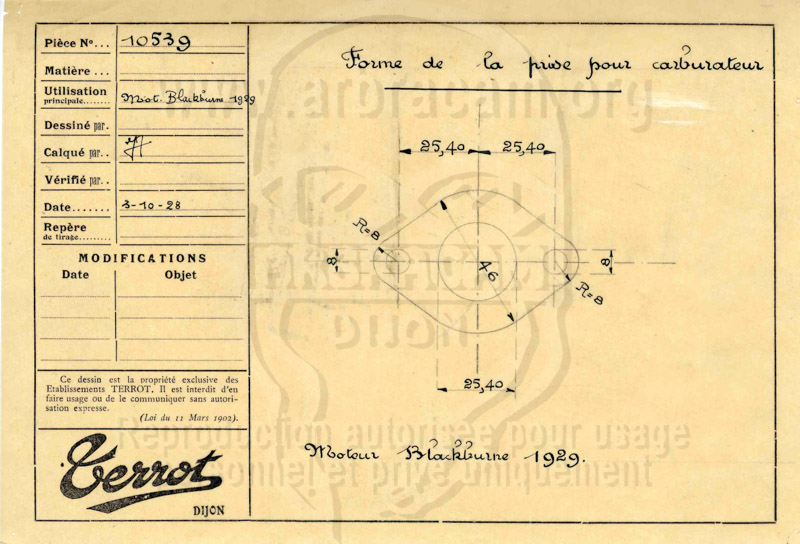 Pièce N°... 10539
Matière ...
Utilisation
principale........ Mot. Blackburne 1929
Dessiné par.
Calqué par..
Vérifié par..
Date....... 3-10-28
Repère
de tirage.........
MODIFICATIONS
Date Objet
Ce dessin est la propriété exclusive des
Etablissements TERROT. Il est interdit d'en
faire usage ou de le communiquer sans autori-
sation expresse.
(Loi du 11 Mars 1902).
Terrot
DIJON
Forme de la prise pour carburateur
www.arbracam.org
25,40 25,40
R=8
8
46
8
R=8
DIJON
25,40
Reproduction autorisée pour usage
Moteur Blackburne 1929.
personnel et privé uniquement